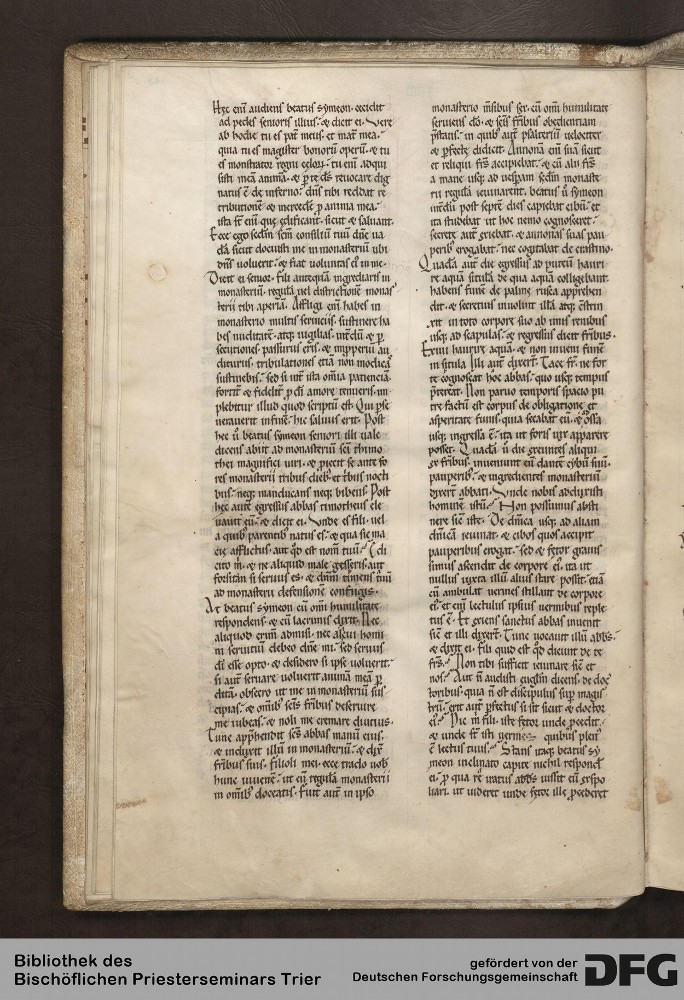 Hęc eni͂ audiens beatus symeon. cecidit
ad pedes senioris illius. & dicit ei. Vere
ab hodie tu es pat̃ meus. et mat̃ mea.
quia tu es magister bonorũ operũ. & tu
es monstrator regni cęlorũ. tu eni͂ adqui
sisti meã animã. & p̱ te ds̃ reuocare dig
natus ẽ de inferno. dñs tibi reddat re
tributionẽ & mercedẽ p̱ anima mea.
ista st̃ eni͂ quę edificant. sicut & saluant.
Ecce ego sedm̃ sem̃ consiliũ tuũ dñe ua
dã sicut docuisti me in monasteriũ ubi
dñs uoluerit. & fiat uoluntas ei᷒ in me.
Dicit ei senior. Fili antequã ingrediaris in
monasteriũ. regulã uel districtionẽ monas
terii tibi aperiã. Affligi eni͂ habes in
monasterio multis seruiciis. sustinere ha
bes nuditatẽ. atq; uigilias. int̃diũ & p̱
secutiones. passurus eris. & inp̱periũ au
diturus. tribulationes etiã non modicas
sustinebis. sed si uñt ista om̃ia patiencia
fortit̃ & fidelit̃ p̱ di͂ amore tenueris. im
plebitur illud quod scriptũ est. Qui p̱se
uerauerit in finẽ. hic saluus erit. Post
hec ũ beatus symeon seniori illi uale
dicens abiit ad monasteriũ sc̃i thimo
thei magnifici uiri. & p̱iecit se ante fo
res monasterii tribus dieb᷒. et trib᷒ nocti
bus. neq; manducans neq; bibens. Post
hec autẽ egressus abbas timotheus ele
uauit eũ. & dicit ei. Vnde es fili. uel
a quib᷒ parentib᷒ natus es. & qua sic ma
cie afflictus. aut qđ est nom̃ tuũ. Edi
cito m̃. & ne aliquid male gesseris. aut
forsitan si seruus es. & dñm̃ timens tuũ
ad monasterii defensionẽ confugis.
At beatus symeon cũ om̃i humilitate
respondens. & cũ lacrimis dixit. Nec
aliquod crim̃ admisi. nec alicui homi
ni seruitiũ debeo dñe mi. sed seruus
di͂ esse opto. & desidero si ipse uoluerit.
si aut̃ seruare uoluerit animã meã p̱
ditã. obsecro ut me in monasteriũ sus
cipias. & om̃ib᷒ sc̃is fr̃ibus deseruire
me iubeas. & noli me cremare diutius.
Tunc app̃hendit sc̃s abbas manũ eius.
& induxit illũ in monasteriũ. & dix̃
fr̃ibus suis. Filioli mei. ecce trado uob̃
hunc iuuenẽ. ut eũ regulã monasterii
in om̃ib᷒ doceatis. Fuit aut̃ in ipso
monasterio m̃sibus sex. cũ om̃i humilitate
seruiens dõ. & sc̃is fr̃ibus obedientiam
p̃stans. in quib᷒ aut̃ psalteriũ uelociter
& p̱fecte didicit. Annonã eni͂ suã sicut
et reliqui fr̃s accipiebat. & cũ alii fr̃s
a mane usq; ad uesp̱am sedm̃ monaste
rii regulã ieiunarent. beatus ũ symeon
int̃dũ post septẽ dies capiebat cibũ. et
ita studebat ut hoc nemo cognosceret.
secrete aut̃ exiebat. & annonas suas pau
perib᷒ erogabat. nec cogitabat de crastino.
Quadã aut̃ die egressus ad puteũ hauri
re aquã. situlã de qua aquã colligebant.
habens funẽ de palme rusca app̃hen
dit. & secretius inuoluit illã. atq; c̃strin
xit in toto corpore suo ab imis renibus
usq; ad scapulas. & regressus dicit fr̃ibus.
Exiui haurire aquã. & non inueni funẽ
in situla. Illi aut̃ dixert̃. Tace fr̃. ne for
te cognoscat hoc abbas. quo usq; tempus
p̃tereat. Non paruo temporis spacio pu
tre factũ est corpus de obligatione et
asperitate funis. quia secabat eũ. & ossa
usq; ingressa ẽ. ita ut foris uix apparere
posset. Quadã ũ die exeuntes aliqui
ex fr̃ibus. inuenert̃ eũ dantẽ cybũ suũ
pauperib᷒. & ingredientes monasteriũ
dixert̃ abbati. Vnde nobis adduxisti
hominẽ istũ. Non possumus absti
nere sic̃ iste. De dñica usq; ad aliam
dñicã ieiunat. & cibos quos accipit
pauperibus erogat. sed & fetor grauis
simus ascendit de corpore ei᷒. ita ut
nullus iuxta illũ alius stare possit. etiã
cũ ambulat uermes stillant de corpore
ei᷒. et eni͂ lectulus ipsius uermibus reple
tus ẽ. Et exiens sanctus abbas inuenit
sic̃ et illi dixert̃. Tunc uocauit illũ abb̃s.
& dixit ei. Fili quid est qđ dicunt de te
fr̃s. Non tibi sufficit ieiunare sic̃ et
nos. Aut ñ audisti euglm̃ dicens. de doc
toribus. quia ñ est discipulus sup̱ magis
trũ. erit aut̃ p̱fectus si sit sicut & doctor
ei᷒. Dic m̃ fili. iste fetor unde p̱cedit.
& unde st̃ isti uermes. quibus plen᷒
ẽ lectus tuus. Stans itaq; beatus sy
meon inclinato capite nichil respondit
ei. p̱ qua re iratus abb̃s iussit eũ exspo
liari. ut uideret unde fetor ille p̱cederet
Bibliothek des
Bischöflichen Priesterseminars Trier
gefördert von der
Deutschen Forschungsgemeinschaft
DFG